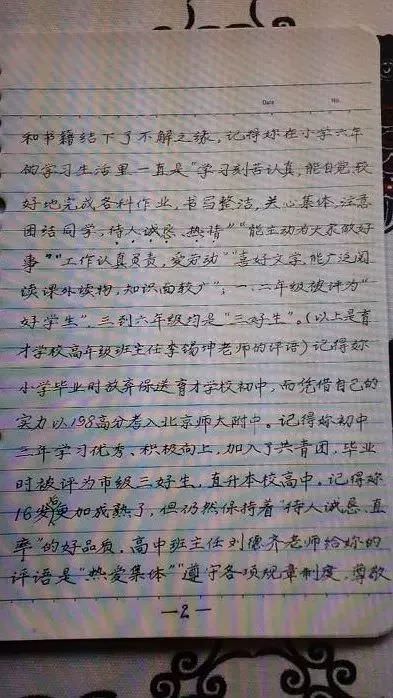 Date No.
和书籍结下了不解之缘，记得妳在小学六年
的学习生活里一直是"学习刻苦认真，能自觉较
好地完成各科作业，书写整洁，关心集体，注意
团结同学，待人诚恳、热情""能主动为大家做好
事""工作认真负责，爱劳动""喜好文学，能广泛阅
读课外读物，知识面较广"，一、二年级被评为"
好学生"，三到六年级均是"三好生"。(以上是育
才学校高年级班主任李锡坤老师的评语)记得妳
小学毕业时放弃保送育才学校初中，而凭借自己的
实力以198高分考入北京师大附中。记得妳初中
三年学习优秀、积极向上，加入了共青团，毕业
时被评为市级三好生，直升本校高中。记得妳
16岁更加成熟了，但仍然保持着"待人诚恳、直
率"的好品质，高中班主任刘德齐老师给妳的
评语是"热爱集体""遵守各项规章制度，尊敬
—2—